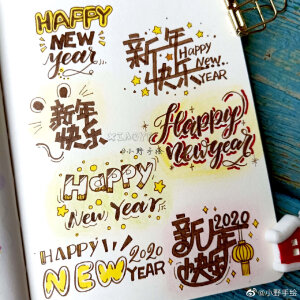 HAPPY
NEW
year
新年
快乐
Happy
New
YEAR
新年
快乐
@小野手绘
Happy
New Year
Happy
New Year
HAPPY
NEW
2020
YEAR
2020
新年
快乐
@小野手绘